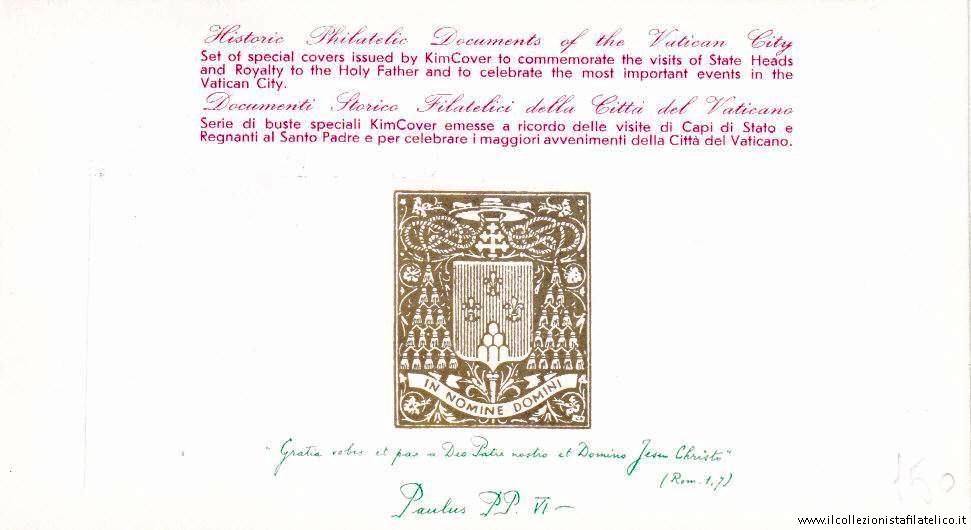 Historic Philatelic Documents of the Vatican City
Set of special covers issued by KimCover to commemorate the visits of State Heads
and Royalty to the Holy Father and to celebrate the most important events in the
Vatican City.
Documenti Storico Filatelici della Città del Vaticano
Serie di buste speciali KimCover emesse a ricordo delle visite di Capi di Stato e
Regnanti al Santo Padre e per celebrare i maggiori avvenimenti della Città del Vaticano.
IN NOMINE DOMINI
"Gratia vobis et pax a Deo Patre nostro et Domino Jesu Christo"
(Rom. 1,7)
Paulus PP. VI
150
www.ilcollezionistafilatelico.it